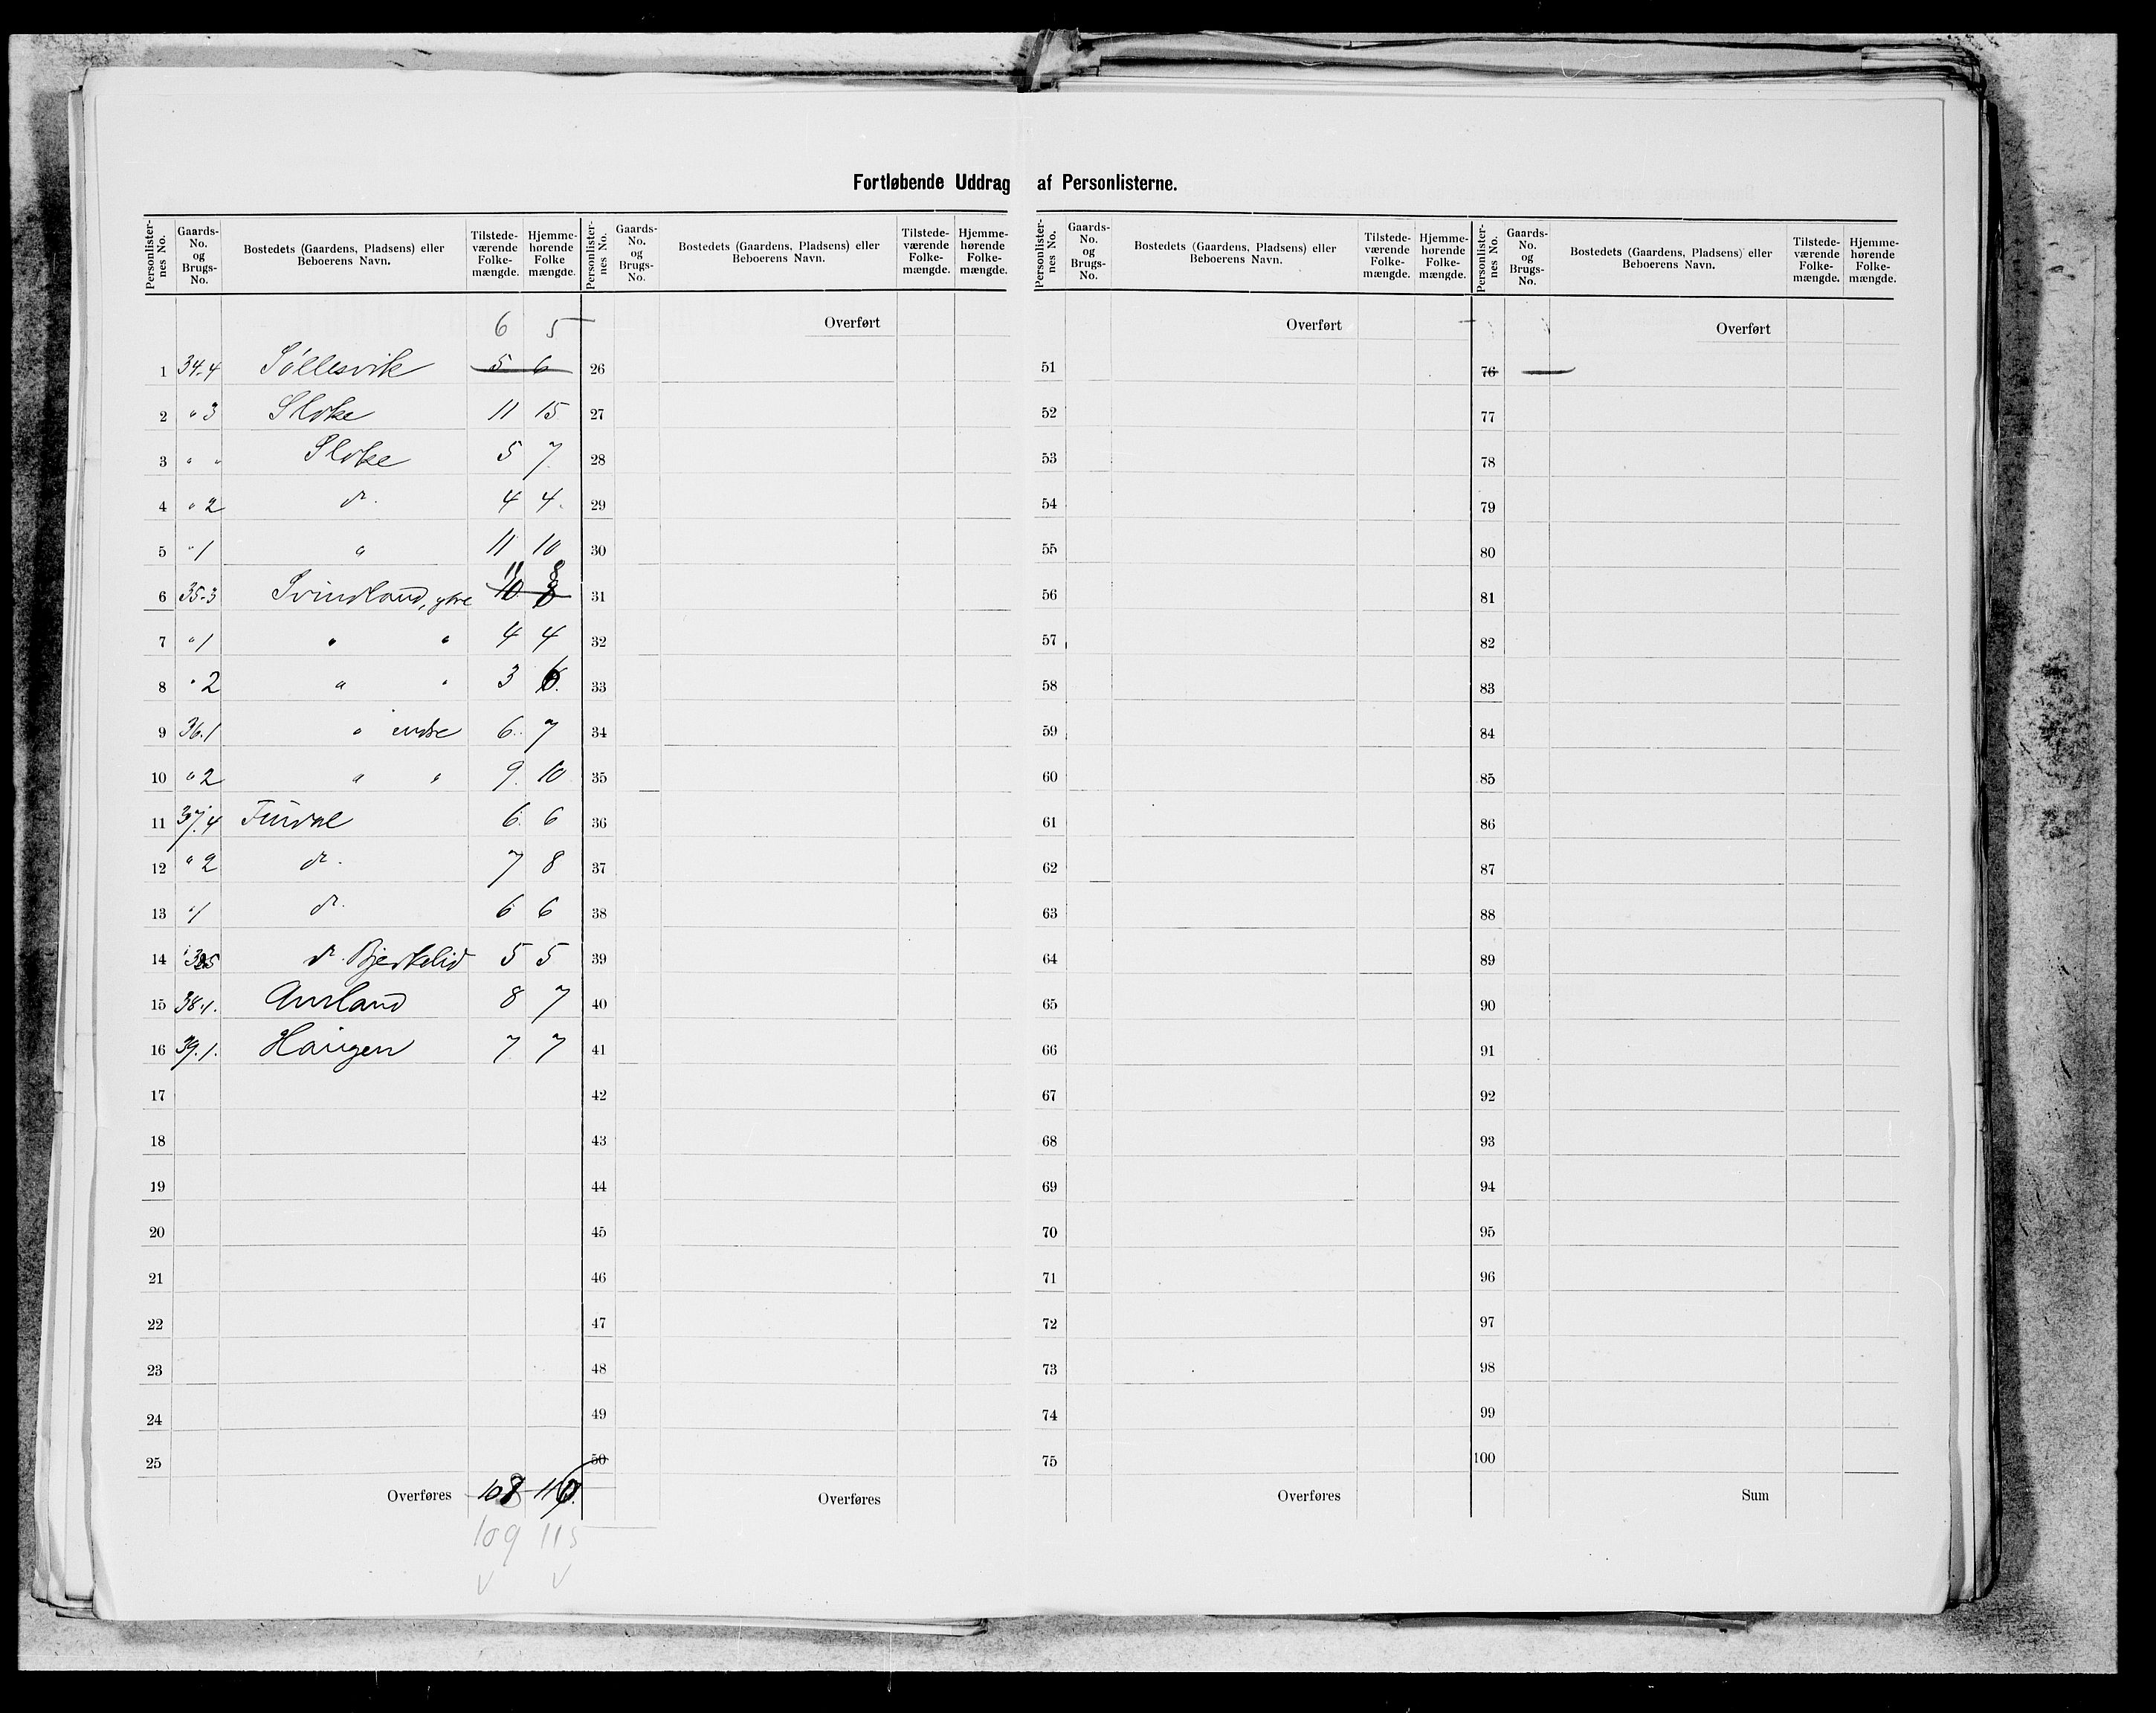 Fortløbende Uddrag af Personlisterne.
Personlister-nes No. | Gaards-No. og Brugs-No. | Bostedets (Gaardens, Pladsens) eller Beboerens Navn. | Tilstede-værende Folke-mængde. | Hjemme-hørende Folke mængde.
6 5
1 34.4 Söllesvik 5 6
2 " 3 Sloke 11 15
3 " " Sloke 5 7
4 " 2 do. 4 4.
5 " 1 " 11 10
11 8
6 35-3 Svindland, ytre 10 8
7 " 1 " " 4 4
8 " 2 " " 3 6.
9 36.1 " indre 6. 7
10 " 2 " " 9. 10
11 37.4 Findal 6 6
12 " 2 do. 7 8
13 " 1 do. 6 6
14 do. Bjerkelid 5 5
15 38.1. Aurland 8 7
16 39.1. Haugen 7 7
17
18
19
20
21
22
23
24
25
Overføres 108 116.
109 115
V V
Personlister-nes No. | Gaards-No. og Brugs-No. | Bostedets (Gaardens, Pladsens) eller Beboerens Navn. | Tilstede-værende Folke-mængde. | Hjemme-hørende Folke-mængde.
Overført
26
27
28
29
30
31
32
33
34
35
36
37
38
39
40
41
42
43
44
45
46
47
48
49
50
Overføres
Personlister-nes No. | Gaards-No. og Brugs-No. | Bostedets (Gaardens, Pladsens) eller Beboerens Navn. | Tilstede-værende Folke-mængde. | Hjemme-hørende Folke-mængde.
Overført
51
52
53
54
55
56
57
58
59
60
61
62
63
64
65
66
67
68
69
70
71
72
73
74
75
Overføres
Personlister-nes No. | Gaards-No. og Brugs-No. | Bostedets (Gaardens, Pladsens) eller Beboerens Navn. | Tilstede-værende Folke-mængde. | Hjemme-hørende Folke-mængde.
Overført
76
77
78
79
80
81
82
83
84
85
86
87
88
89
90
91
92
93
94
95
96
97
98
99
100
Sum